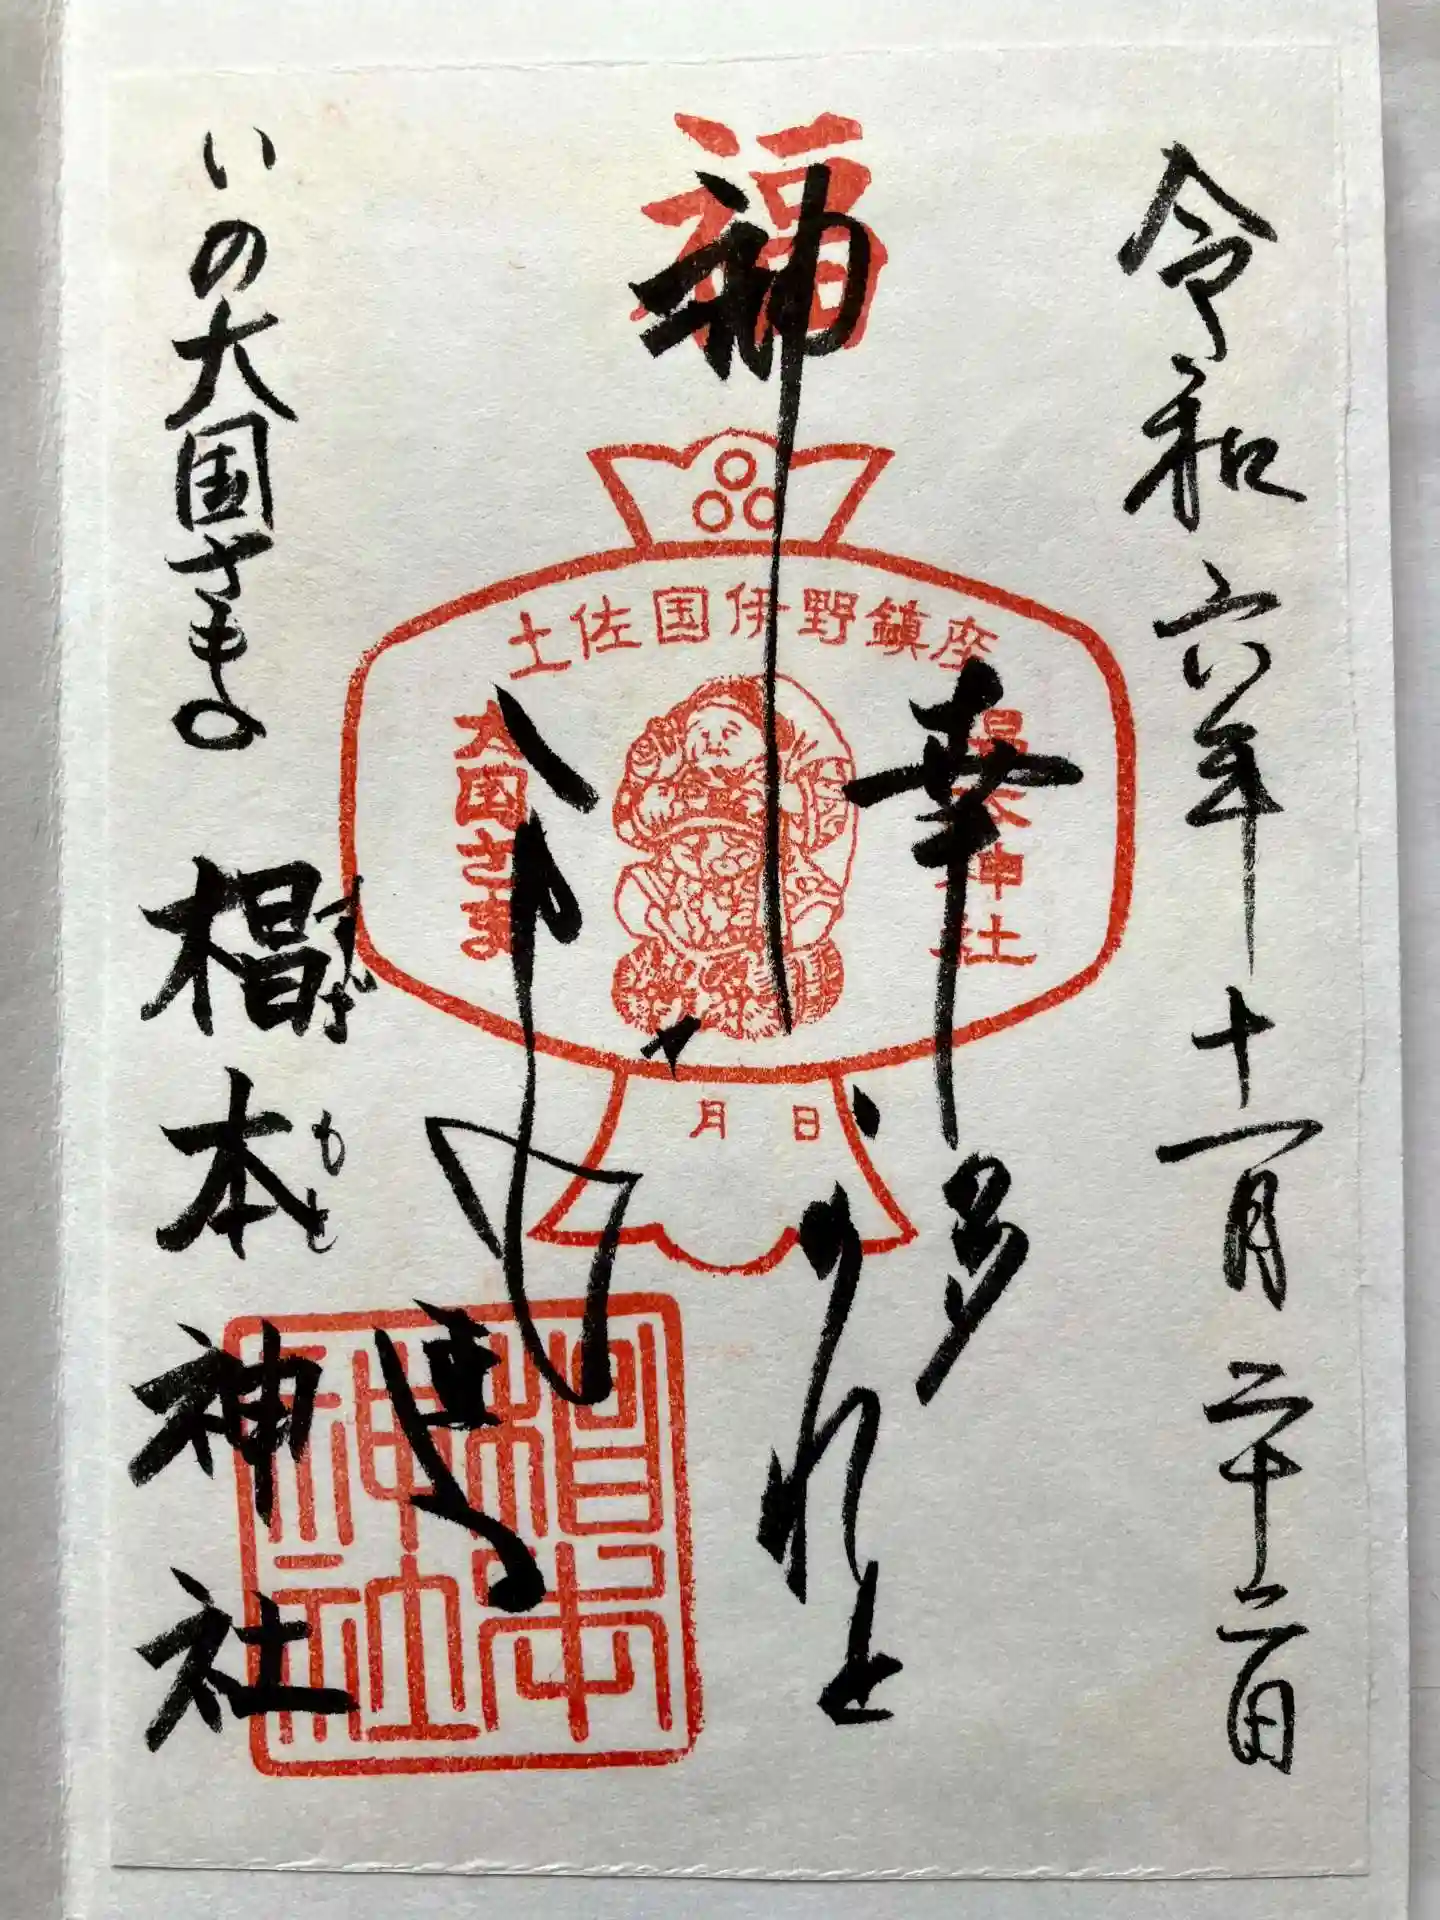 令和六年十一月二十二日
福
神
幸多かれと
土佐国伊野鎮座
椙本神社
大国さま
月 日
いの大国さまの
椙本神社
すぎもと
椙本神社